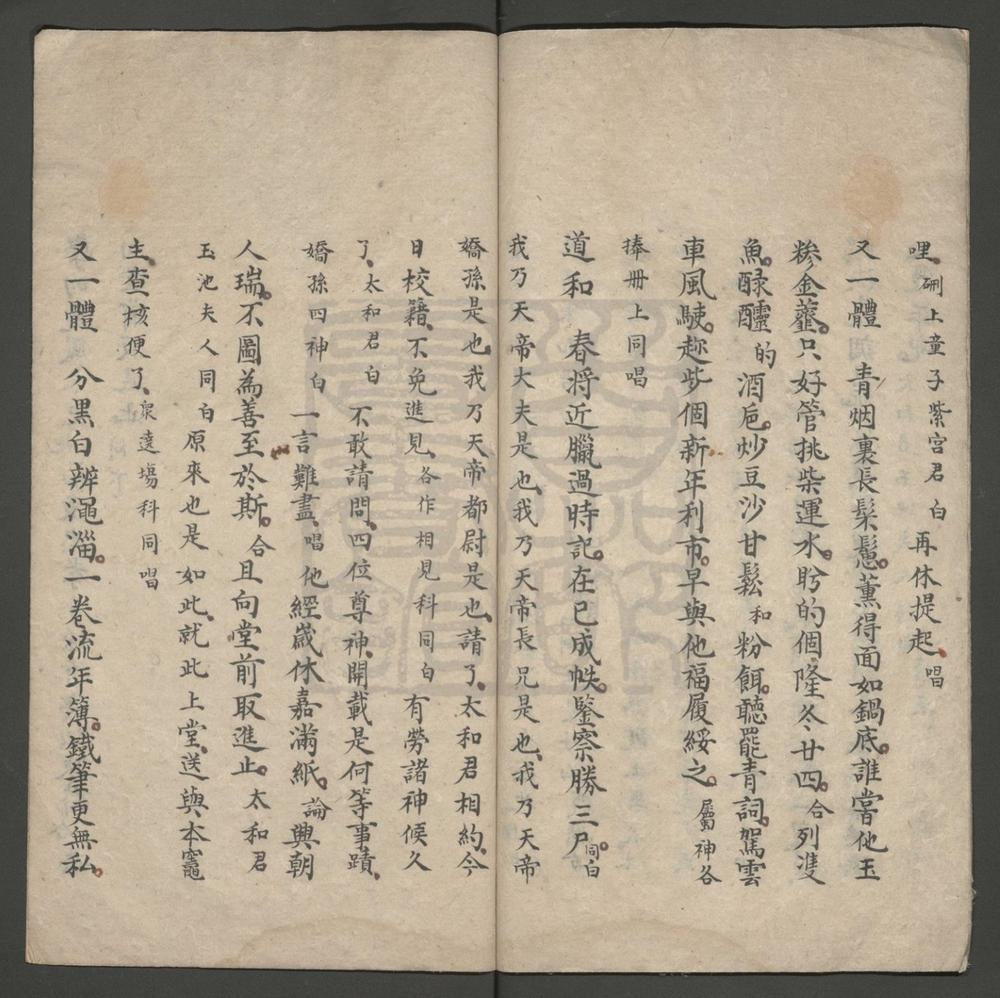 哩、刪上童子紫宮君白再休提起、唱
又一體　青烟裏長髹鬆薰得面如鍋底。誰嘗他玉
糝金虀。只好管挑柴運水。盻的個隆冬廿四。合列隻
魚。醁醽的酒巵。炒豆沙甘鬆和粉餌。聽罷青詞。駕雲
車風駛。趂些個新年利市。早與他福履綏之。屬神各
捧册上同唱
道和　春將近臘過時。記在已成帙。鑒察勝三尸。同白
我乃天帝大夫是也、我乃天帝長兄是也、我乃天帝
嬌孫是也、我乃天帝都尉是也、請了、太和君相約、今
日校籍、不免進見、各作相見科同白有勞諸神候久
了、太和君白不敢請問、四位尊神、開載是何等事蹟、
嬌孫四神白一言難盡、唱他經歲休嘉滿紙。論興朝
人瑞。不圖為善至於斯。合且向堂前取進止。太和君
玉池夫人同白原來也是如此、就此上堂、送與本竈
主、查核便了、衆遶場科同唱
又一體　分黑白辨澠淄。一卷流年簿。鐵筆更無私。